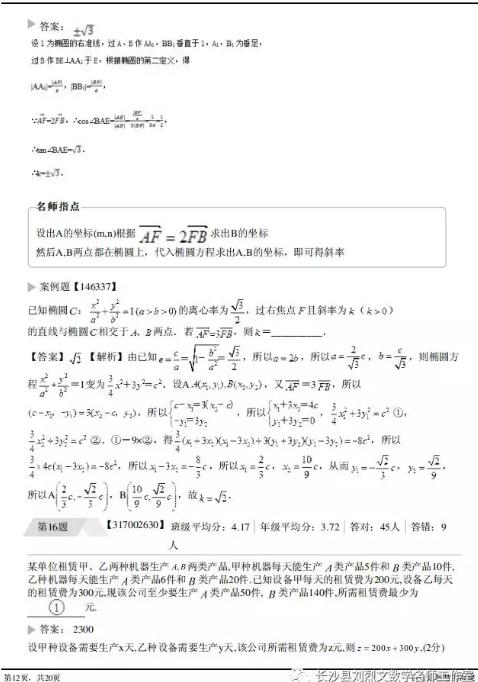 答案： ±√3
设 l 为椭圆的右准线，过 A、B 作 AA₁，BB₁ 垂直于 l，A₁，B₁ 为垂足，
过 B 作 BE⊥AA₁ 于 E，根据椭圆的第二定义，得
|AA₁|=|AF|/e，|BB₁|=|BF|/e，
∵AF=2FB，∴cos∠BAE=
∴tan∠BAE=√3.
∴k=±√3.
名师指点
设出A的坐标(m,n)根据 AF = 2FB 求出B的坐标
然后A,B两点都在椭圆上，代入椭圆方程求出A,B的坐标，即可得斜率
案例题【146337】
已知椭圆C： x²/a²+y²/b²=1(a>b>0)的离心率为√3/2，过右焦点F且斜率为k（k>0）
的直线与椭圆C相交于A、B两点．若 AF=3FB，则k=________．
【答案】√2 【解析】由已知e=c/a=√(1-b²/a²)=√3/2，所以a=2b，所以a=2/√3 c，b=c/√3，则椭圆方
程x²/a²+y²/b²=1变为3/4x²+3y²=c²．设A(x₁,y₁),B(x₂,y₂)，又AF=3FB，所以
(c-x₁,-y₁)=3(x₂-c, y₂)，所以{c-x₁=3(x₂-c) -y₁=3y₂，所以{x₁+3x₂=4c y₁+3y₂=0，3/4x₁²+3y₁²=c² ①，
3/4x₂²+3y₂²=c² ②．①-9×②，得3/4(x₁+3x₂)(x₁-3x₂)+3(y₁+3y₂)(y₁-3y₂)=-8c²，所以
3/4×4c(x₁-3x₂)=-8c²，所以x₁-3x₂=-8/3c，所以x₁=2/3c，x₂=10/9c，从而y₁=-√2/3c，y₂=√2/9c，
所以A(2/3c,-√2/3c)，B(10/9c,√2/9c)，故k=√2．
第16题 【317002630】 班级平均分：4.17 年级平均分：3.72 答对：45人 答错：9
人
某单位租赁甲、乙两种机器生产A,B两类产品,甲种机器每天能生产A类产品5件和B类产品10件,
乙种机器每天能生产A类产品6件和B类产品20件.已知设备甲每天的租赁费为200元,设备乙每天
的租赁费为300元,现该公司至少要生产A类产品50件, B类产品140件,所需租赁费最少为
① 元.
答案： 2300
设甲种设备需要生产x天,乙种设备需要生产y天,该公司所需租赁费为z元,则z=200x+300y,(2分)
第12页，共20页
长沙县刘烈文数学名师工作室